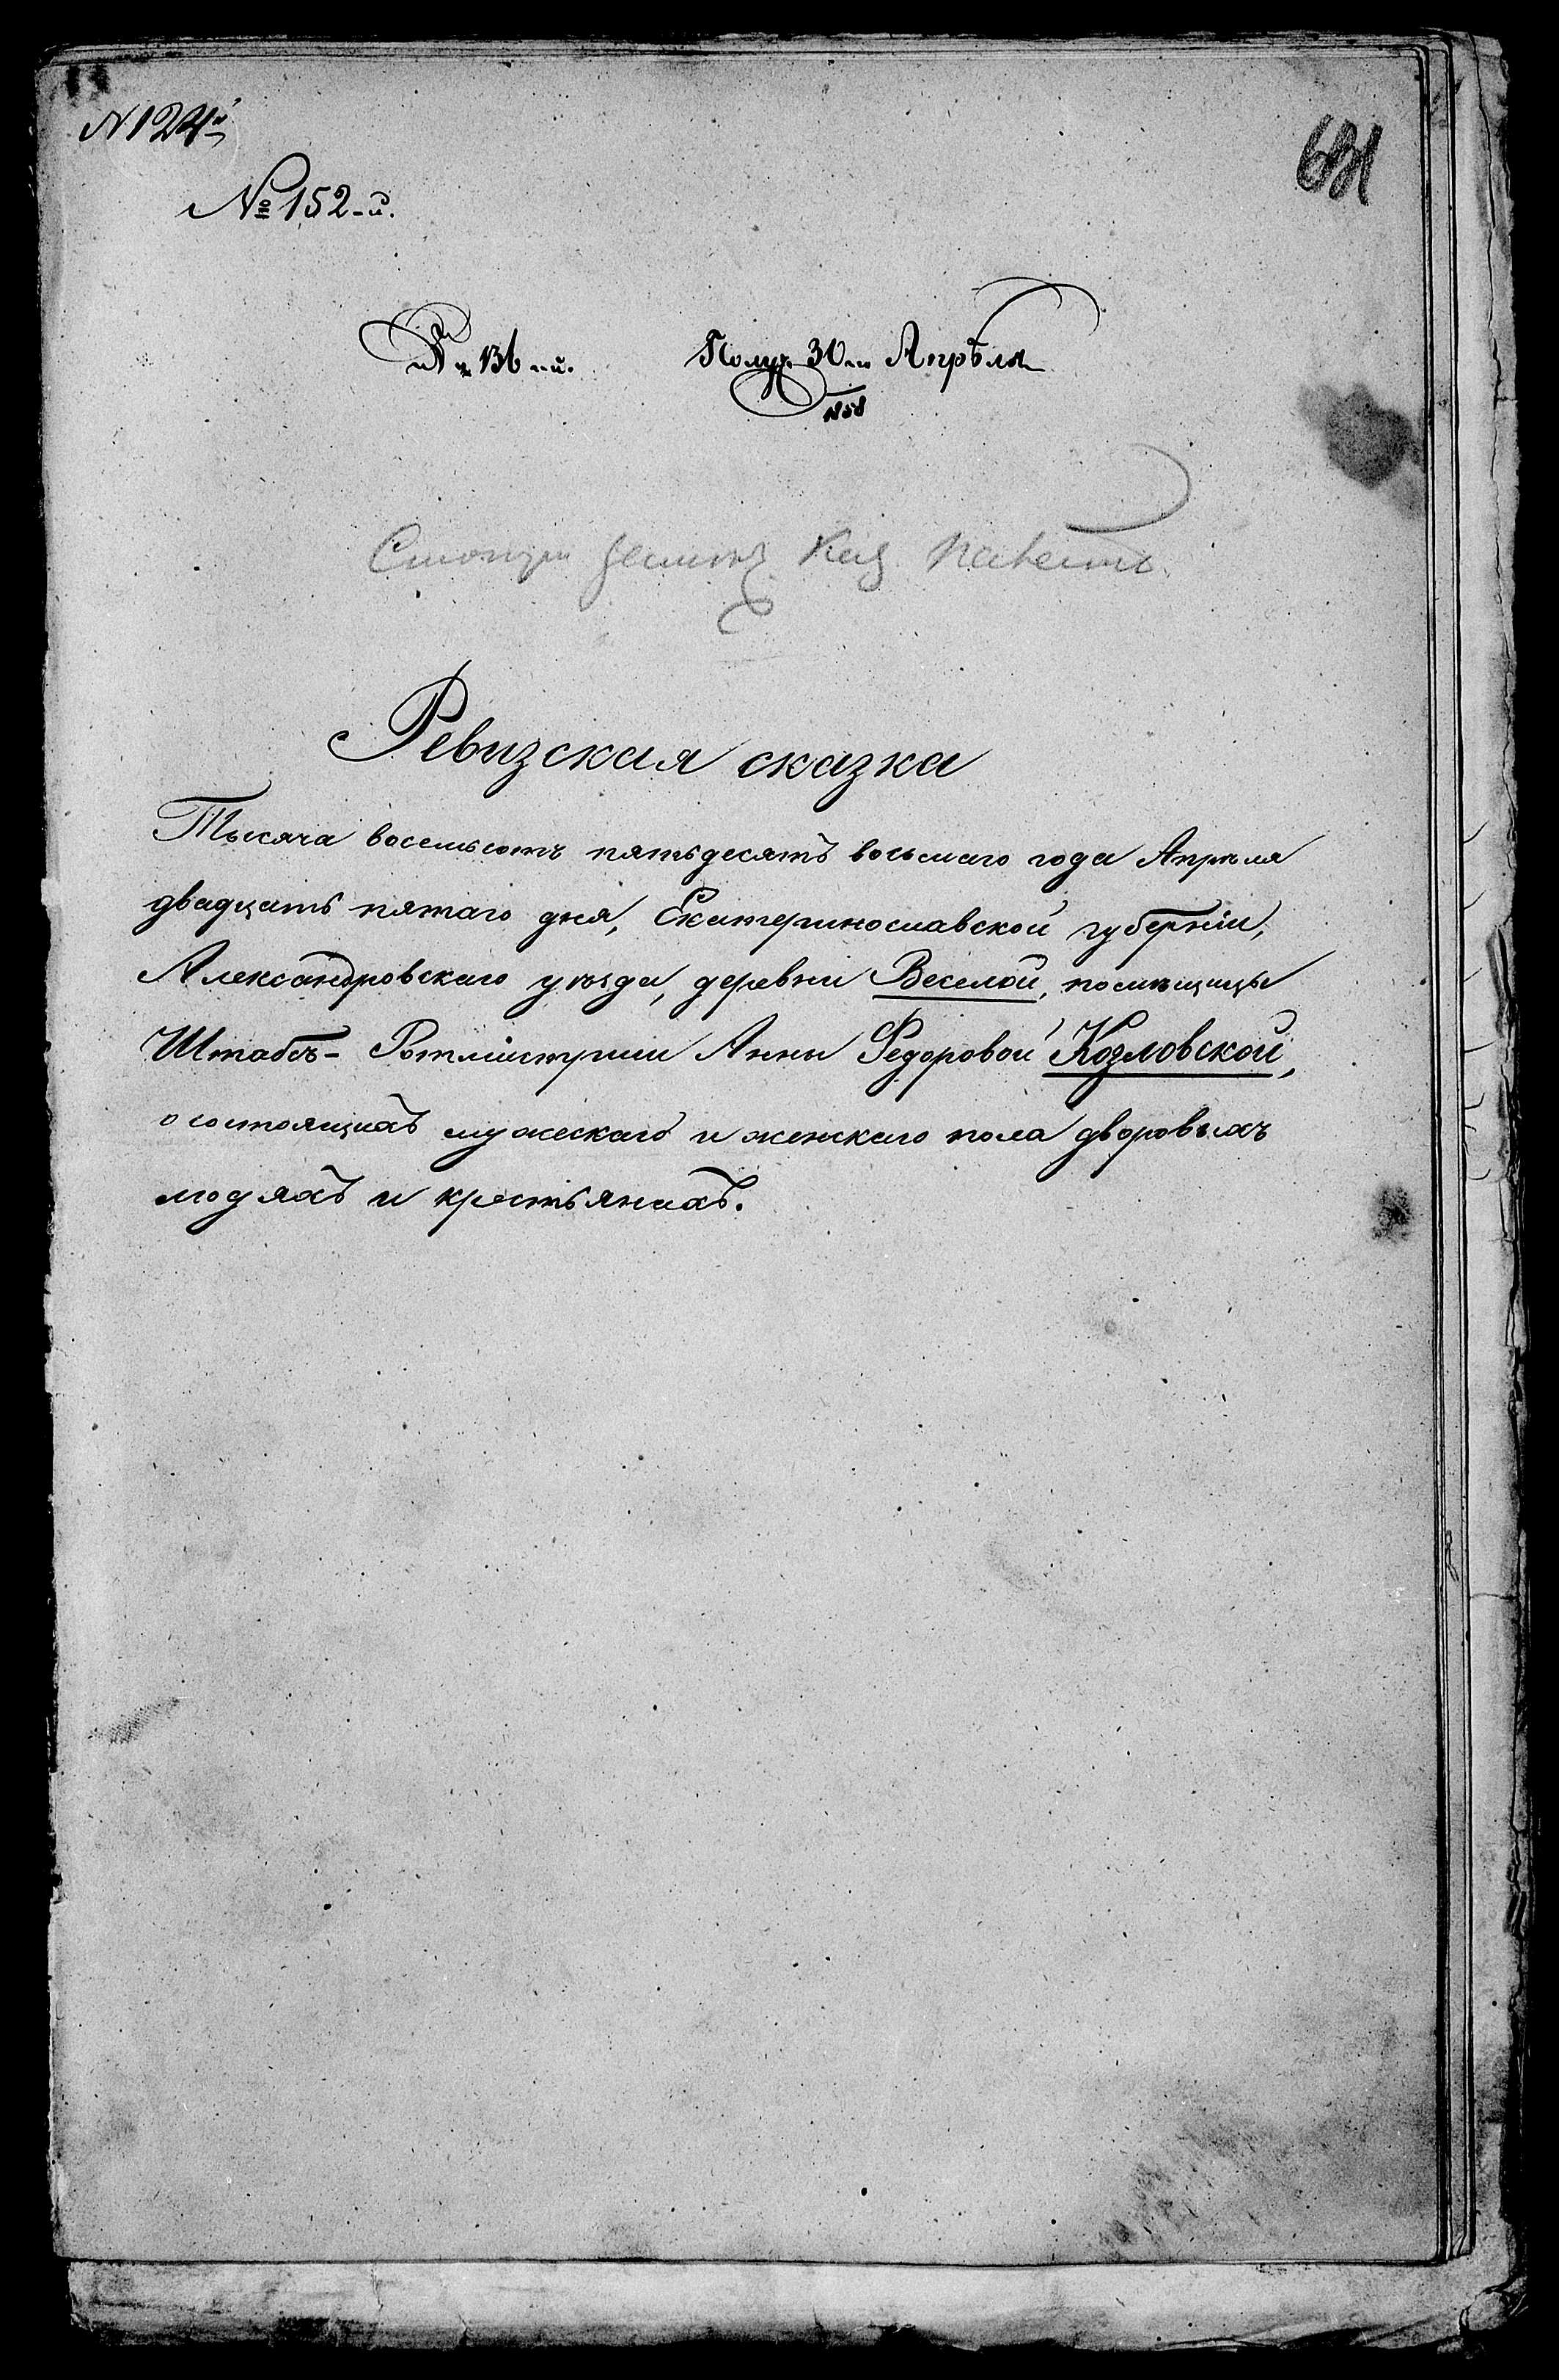 N 124й
№ 152-й.
№ 136-й. Получ. 30го Апрѣля
1858
Ревизская сказка
Тысяча восемьсотъ пятьдесятъ восьмаго года Апрѣля
двадцать пятаго дня, Екатеринославской губерніи,
Александровскаго уѣзда, деревни Веселой, помѣщицы
Штабсъ-Ротмистрши Анны Федоровой Козловской,
о состоящихъ мужескаго и женскаго пола дворовыхъ
людяхъ и крестьянахъ.